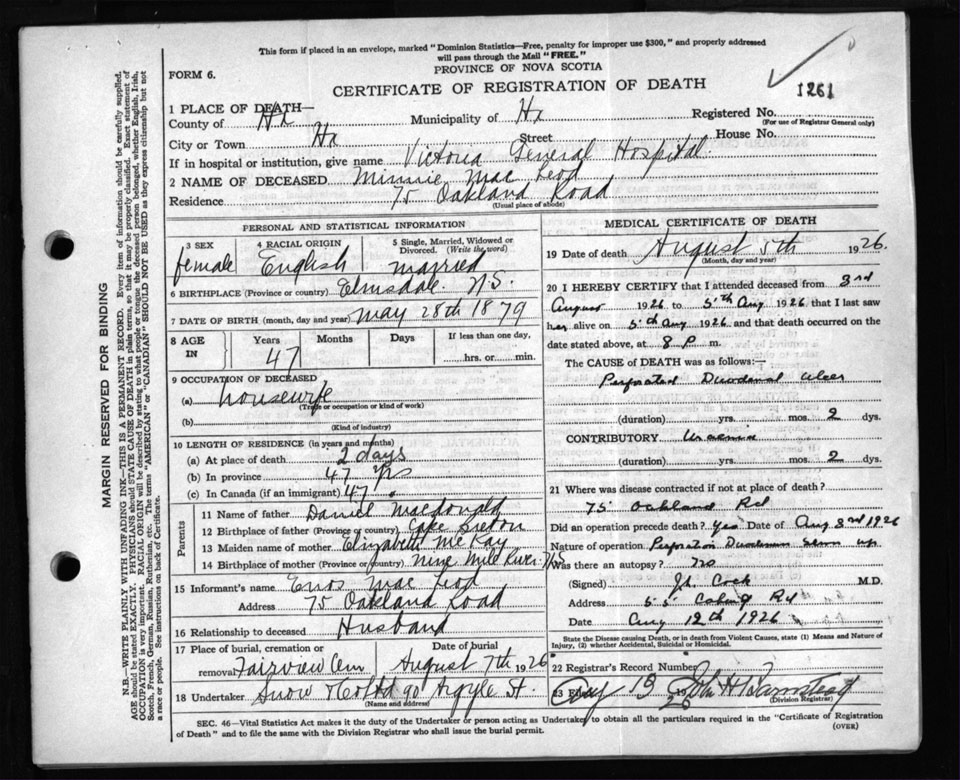 This form if placed in an envelope, marked "Dominion Statistics—Free, penalty for improper use $300," and properly addressed
will pass through the Mail "FREE."
PROVINCE OF NOVA SCOTIA
FORM 6.
CERTIFICATE OF REGISTRATION OF DEATH
1261
1 PLACE OF DEATH—
County of Hx Municipality of Hx Registered No.
(For use of Registrar General only)
City or Town Hx Street House No.
If in hospital or institution, give name Victoria General Hospital.
2 NAME OF DECEASED Minnie Mac Leod
Residence 75 Oakland Road
(Usual place of abode)
PERSONAL AND STATISTICAL INFORMATION
3 SEX female
4 RACIAL ORIGIN English
5 Single, Married, Widowed or
Divorced. (Write the word)
married
6 BIRTHPLACE (Province or country) Elmsdale N.S.
7 DATE OF BIRTH (month, day and year) may 28th 1879
8 AGE IN Years 47 Months Days If less than one day,
hrs. or min.
9 OCCUPATION OF DECEASED
(a) housewife
(Trade or occupation or kind of work)
(b)
(Kind of industry)
10 LENGTH OF RESIDENCE (in years and months)
(a) At place of death 2 days
(b) In province 47 yrs
(c) In Canada (if an immigrant) 47 "
Parents
11 Name of father Daniel Macdonald
12 Birthplace of father (Province or country) Cape Breton
13 Maiden name of mother Elizabeth McKay
14 Birthplace of mother (Province or country) Nine Mile River N.S.
15 Informant's name Enos Mac Leod
Address 75 Oakland Road
16 Relationship to deceased Husband
17 Place of burial, cremation or Date of burial
removal Fairview Cem August 7th 1926
18 Undertaker Snow & Co Ltd 90 Argyle St.
(Name and address)
MEDICAL CERTIFICATE OF DEATH
19 Date of death August 5th 1926.
(Month, day and year)
20 I HEREBY CERTIFY that I attended deceased from 3rd
August 1926 to 5th Aug 1926 that I last saw
her alive on 5th Aug 1926 and that death occurred on the
date stated above, at 8 P m.
The CAUSE OF DEATH was as follows:—
Perforated Duodenal Ulcer
(duration) yrs. mos. 2 dys.
CONTRIBUTORY Uraemia
(duration) yrs. mos. 2 dys.
21 Where was disease contracted if not at place of death?
75 Oakland Rd
Did an operation precede death? Yes Date of Aug 3rd 1926
Nature of operation Perforation Duodenum Sewn up
Was there an autopsy? no
(Signed) Jh. Cock M.D.
Address 55 Coburg Rd
Date Aug 12th 1926
State the Disease causing Death, or in death from Violent Causes, state (1) Means and Nature of
Injury, (2) whether Accidental, Suicidal or Homicidal.
22 Registrar's Record Number
23 Filed Aug 13 1926 John H Barnstead
(Division Registrar)
SEC. 46—Vital Statistics Act makes it the duty of the Undertaker or person acting as Undertaker to obtain all the particulars required in the "Certificate of Registration
of Death" and to file the same with the Division Registrar who shall issue the burial permit.
(OVER)
MARGIN RESERVED FOR BINDING
N.B.—WRITE PLAINLY WITH UNFADING INK—THIS IS A PERMANENT RECORD. Every item of information should be carefully supplied.
AGE should be stated EXACTLY. PHYSICIANS should STATE CAUSE OF DEATH in plain terms, so that it may be properly classified. Exact statement of
OCCUPATION is very important. RACIAL ORIGIN will be described by stating to what people or tongue the deceased person belonged, whether English, Irish,
Scotch, French, German, Russian, Ruthenian, etc. The terms "AMERICAN" or "CANADIAN" SHOULD NOT BE USED as they express citizenship but not
a race or people. See instructions on back of Certificate.